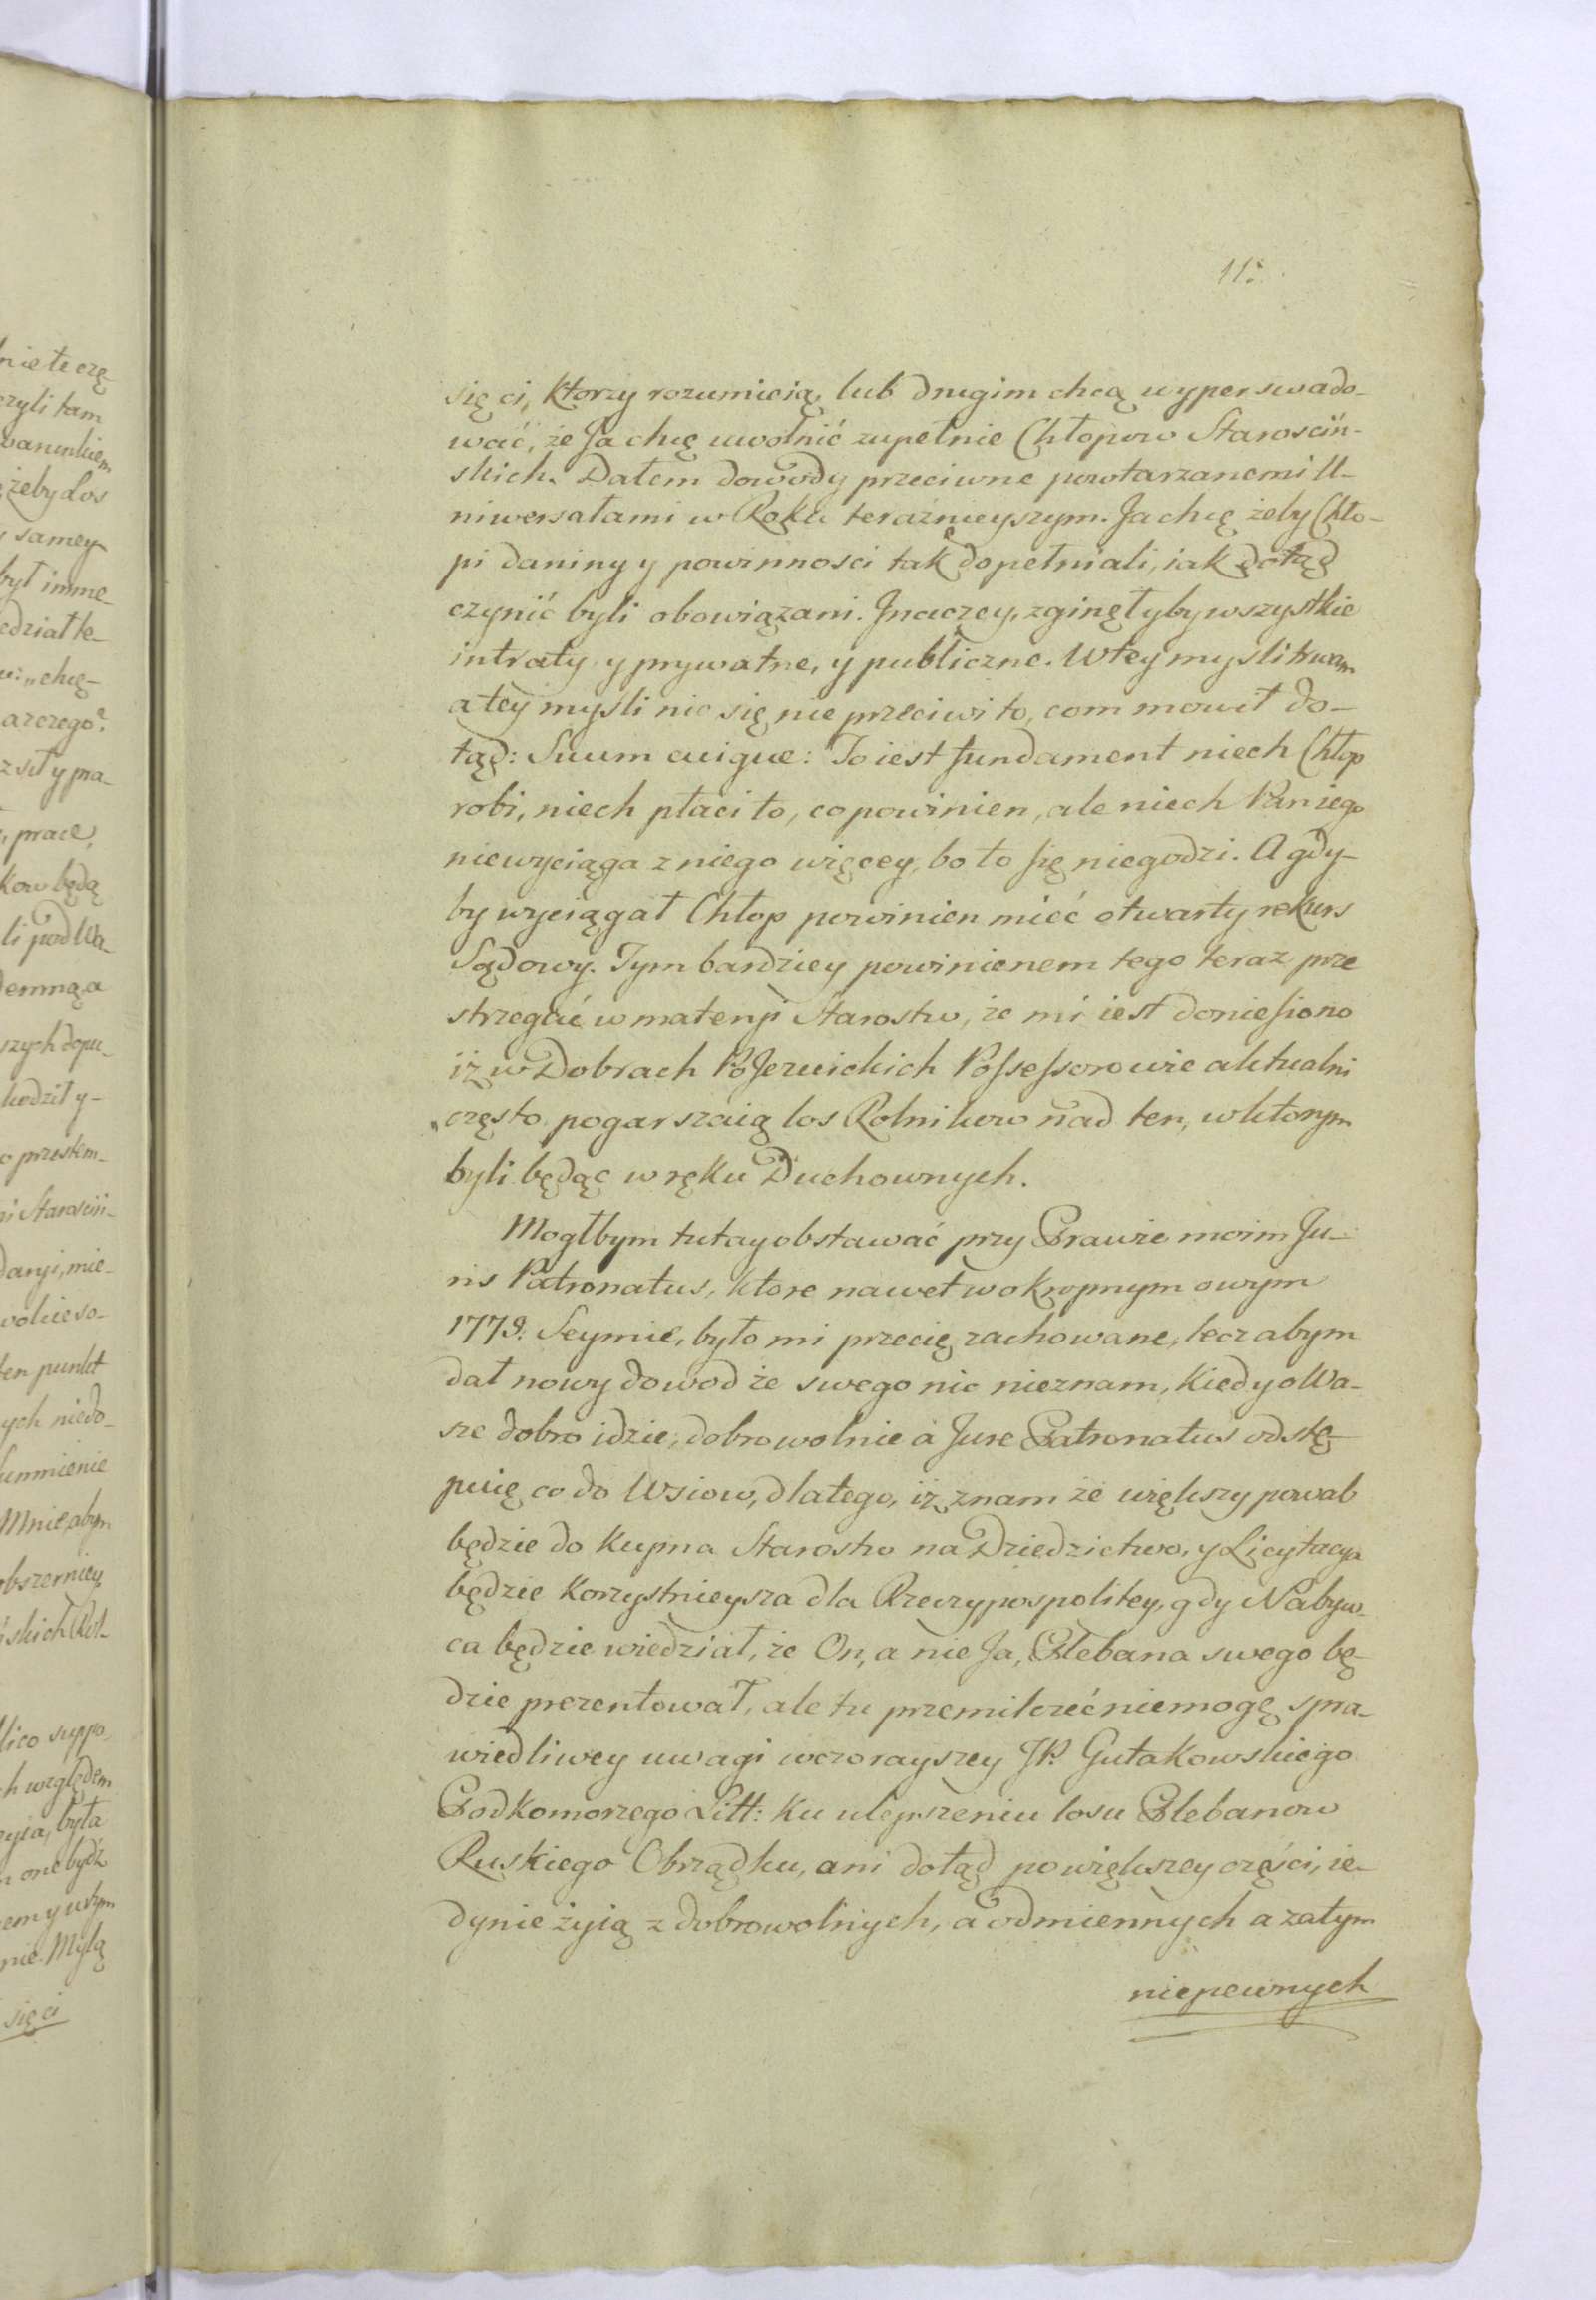 11.
się ci, ktorzy rozumieią, lub drugim chcą wyperswado-
wać, że Ja chcę uwolnić zupełnie Chłopow Starościń-
skich. Dałem dowody przeciwne powtarzanemi U-
niwersałami w Roku teraźnieyszym. Ja chcę żeby Chło-
pi daniny y powinności tak dopełniali, iak dotąd
czynić byli obowiązani. Jnaczey, zginęłyby wszystkie
intraty y prywatne, y publiczne. W tey myśli trwam
a tey myśli nic się nie przeciwi to, com mowił do-
tąd: Suum cuique: To iest fundament niech Chłop
robi, niech płaci to, co powinien, ale niech Pan iego
niewyciąga z niego więcey, bo to się niegodzi. A gdy-
by wyciągał Chłop powinien mieć otwarty rekurs
Sądowy. Tym bardziey powinienem tego teraz prze
strzegać w materyi Starostw, że mi iest doniesiono
iż w Dobrach PoJezuickich Possessorowie aktualni
często pogarszaią los Rolnikow nad ten, w ktorym
byli będąc w ręku Duchownych.
Mogłbym tutay obstawać przy Prawie moim Ju-
ris Patronatus, ktore nawet w okropnym owym
1773. Seymie, było mi przecię zachowane, lecz abym
dał nowy dowod że swego nic nieznam, kiedy o Wa-
sze dobro idzie, dobrowolnie à Jure Patronatus odstę-
puię co do Wsiow, dlatego, iż znam że większy powab
będzie do kupna Starostw na Dziedzictwo, y Licytacya
będzie korzystnieysza dla Rzeczypospolitey, gdy Nabyw-
ca będzie wiedział, że On, a nie Ja, Plebana swego bę-
dzie prezentował, ale tu przemilczeć niemogę spra-
wiedliwey uwagi wczorayszey JP. Gutakowskiego
Podkomorzego Litt: ku ulepszeniu losu Plebanow
Ruskiego Obrządku, ani dotąd po większey części, ie-
dynie żyią z dobrowolnych, a odmiennych a zatym
niepewnych